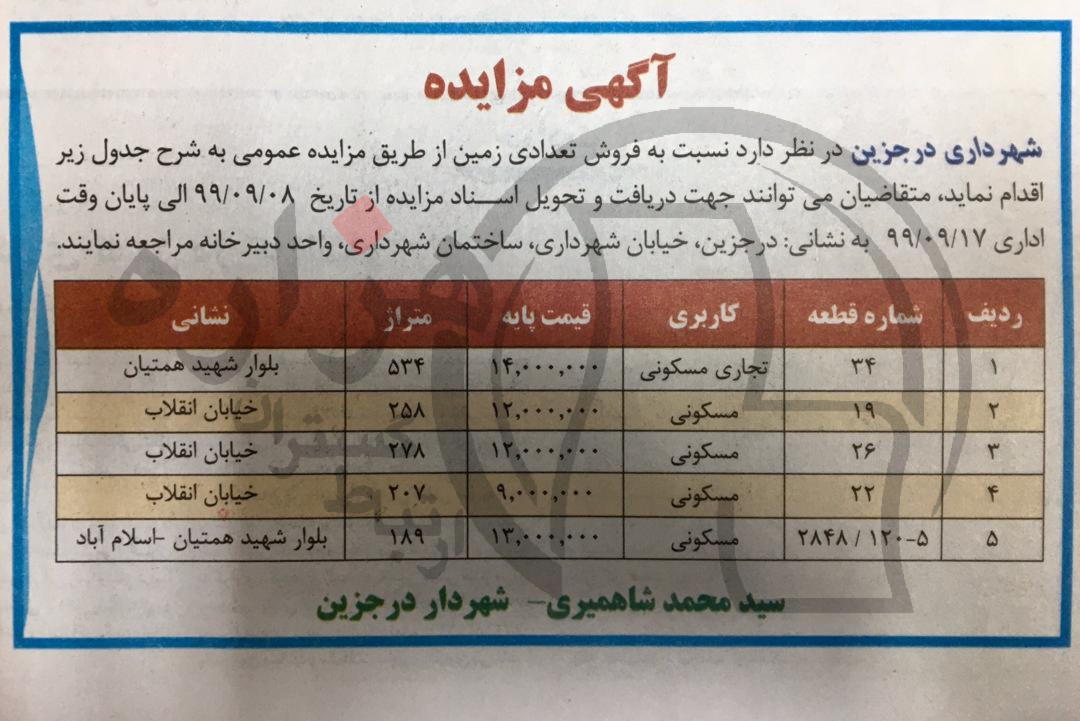 آگهی مزایده
شهرداری درجزین در نظر دارد نسبت به فروش تعدادی زمین از طریق مزایده عمومی به شرح جدول زیر
اقدام نماید، متقاضیان می توانند جهت دریافت و تحویل اسـناد مزایده از تاریخ ۹۹/۰۹/۰۸ الی پایان وقت
اداری ۹۹/۰۹/۱۷ به نشانی: درجزین، خیابان شهرداری، ساختمان شهرداری، واحد دبیرخانه مراجعه نمایند.
ردیف شماره قطعه کاربری قیمت پایه متراژ نشانی
۱ ۳۴ تجاری مسکونی ۱۴,۰۰۰,۰۰۰ ۵۳۴ بلوار شهید همتیان
۲ ۱۹ مسکونی ۱۲,۰۰۰,۰۰۰ ۲۵۸ خیابان انقلاب
۳ ۲۶ مسکونی ۱۲,۰۰۰,۰۰۰ ۲۷۸ خیابان انقلاب
۴ ۲۲ مسکونی ۹,۰۰۰,۰۰۰ ۲۰۷ خیابان انقلاب
۵ ۲۸۴۸ / ۱۲۰-۵ مسکونی ۱۳,۰۰۰,۰۰۰ ۱۸۹ بلوار شهید همتیان -اسلام آباد
سید محمد شاهمیری- شهردار درجزین
هزاره
گستران
ارتباط